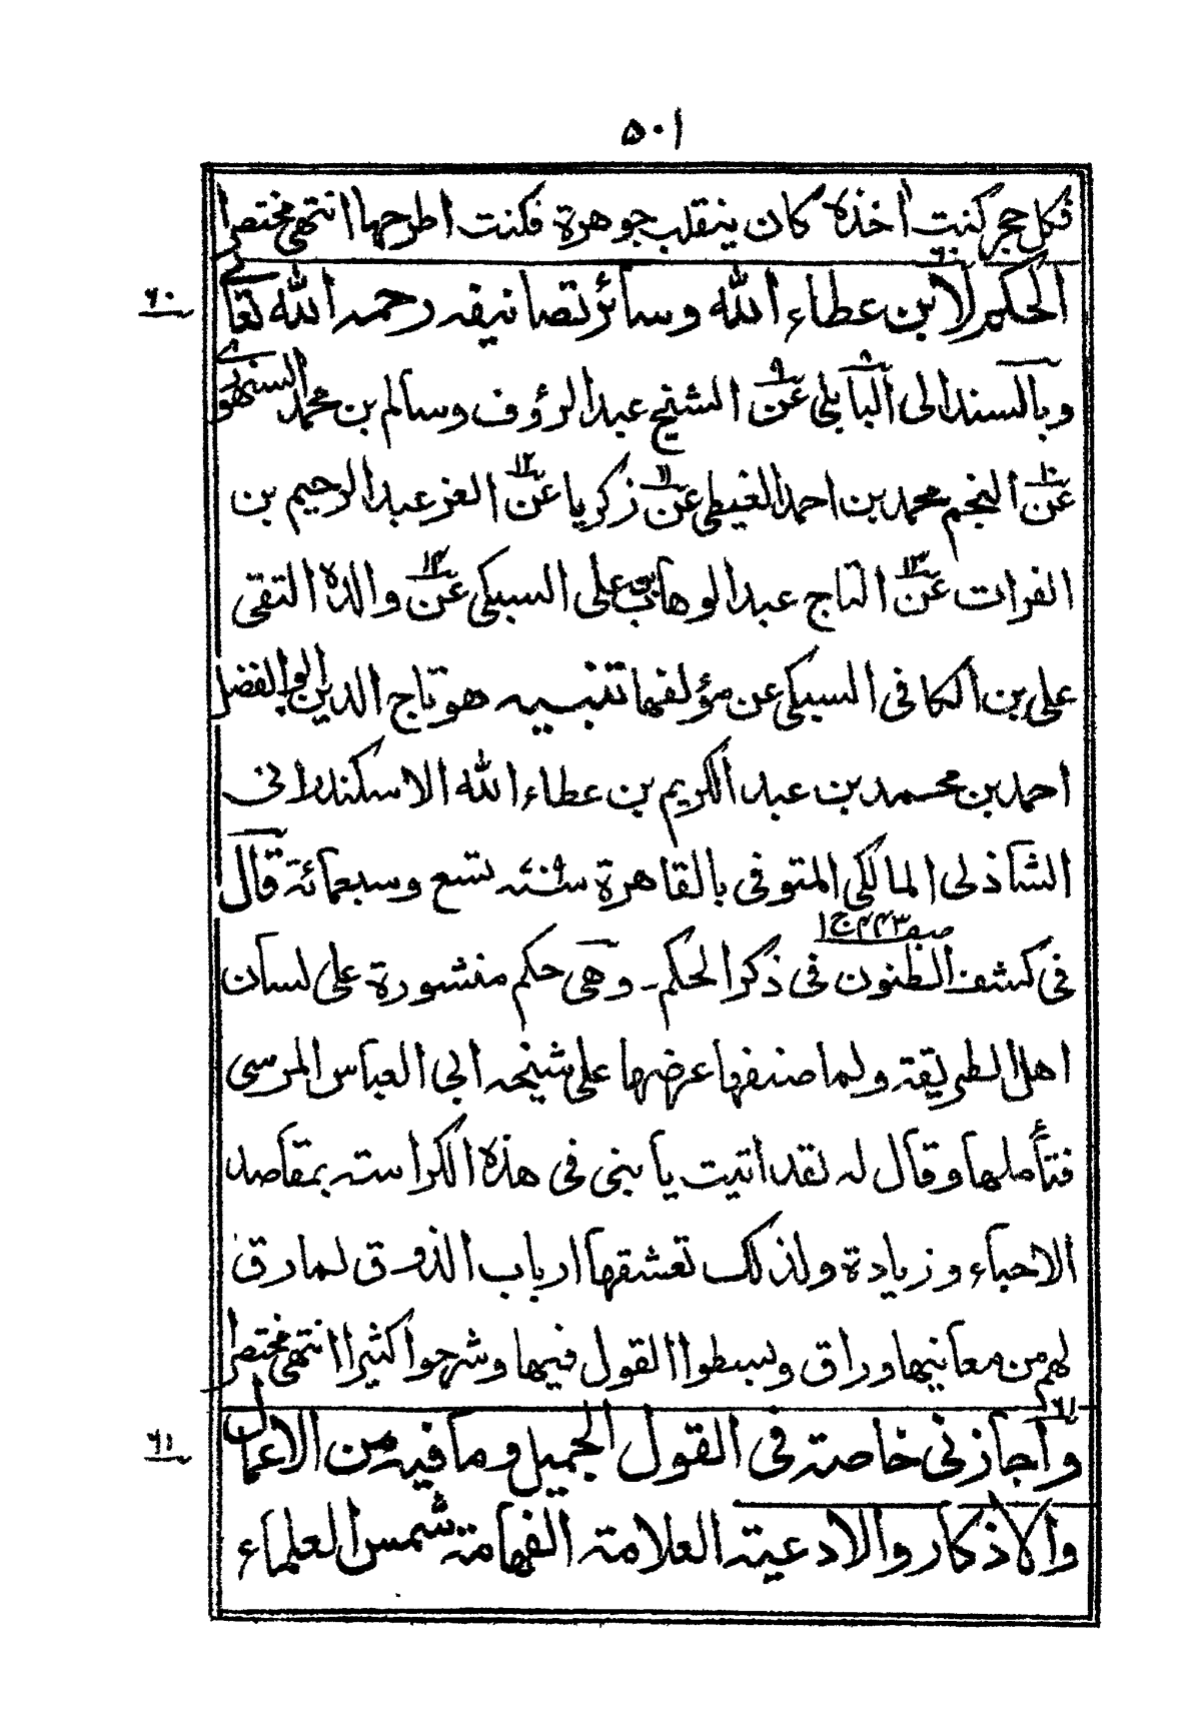 ٥٠١
فكل حجر كنت اخذه كان ينقلب جوهرة فكنت اطرحها انتهى مختصرا
٦٠
الحكم لابن عطاء الله وسائر تصانيفه رحمه الله تعالى
٦٠
وبالسند الى البابلى ٨ عن ٩ الشيخ عبد الرؤف وسالم بن محمد السنهورى
عن ١٠ النجم محمد بن احمد الغيطى عن ١١ زكريا عن ١٢ العز عبد الرحيم بن
الفرات عن ١٣ التاج عبد الوهاب بن على السبكى عن ١٤ والده التقى
على بن الكافى السبكى عن مؤلفها تنبيه هو تاج الدين ابو الفضل
احمد بن محمد بن عبد الكريم بن عطاء الله الاسكندرانى
الشاذلى المالكى المتوفى بالقاهرة سنة ٧٠٩ تسع وسبعمائة قال
صف ٤٤٣ ج ١
فى كشف الظنون فى ذكر الحكم - وهى حكم منشورة على لسان
اهل الطريقة ولما صنفها عرضها على شيخه ابى العباس المرسى
فتأملها وقال له لقد اتيت يا بنى فى هذه الكراسته بمقاصد
الاحياء وزيادة ولذلك تعشقها ارباب الذوق لما رق
لهم من معانيها وراق وبسطوا القول فيها وشرحوا كثيرا انتهى مختصرا
٦١
واجازنى خاصة فى القول الجميل وما فيه من الاعمال
٦١
والاذكار والادعية العلامة الفهامة شمس العلماء